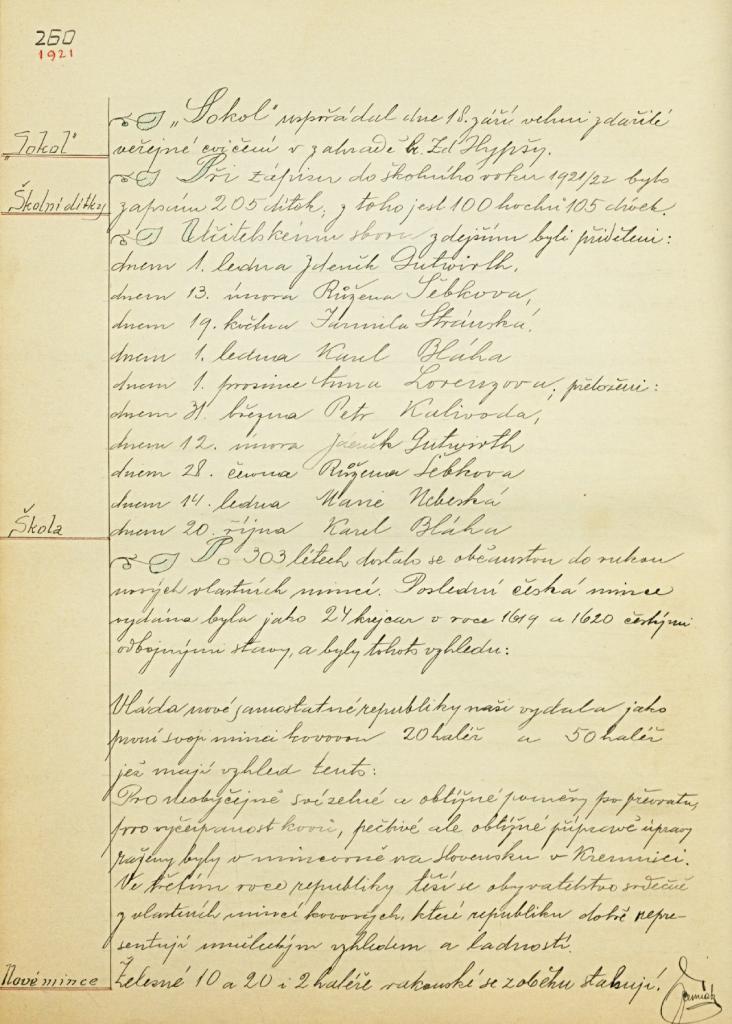 260
1921
„Sokol" uspořádal dne 18. září velmi zdařilé
„Sokol"
veřejné cvičení v zahradě h. Zd Hypšy.
Při zápisu do školního roku 1921/22 bylo
Školní dítky
zapsáno 205 dítek, z toho jest 100 hochů 105 dívek.
Učitelskému sboru zdejším byli přiděleni:
dnem 1. ledna Zdeněk Gutwirth,
dnem 13. února Růžena Šebkova,
dnem 19. května Jarmila Stránská.
dnem 1. ledna Karel Bláha
dnem 1. prosince Anna Lorenzova; přeloženi:
dnem 31. března Petr Kalivoda,
dnem 12. února Zdeněk Gutwirth
dnem 28. června Růžena Šebkova
dnem 14. ledna Marie Nebeská
Škola
dnem 20. října Karel Bláha
Po 303 létech dostalo se občanstvu do rukou
nových vlastních mincí. Poslední česká mince
vydána byla jako 24 krejcar v roce 1619 a 1620 českými
odbojnými stavy, a byly tohoto vzhledu:
Vláda nové samostatné republiky naší vydala jako
první svoji minci kovovou 20 haléř a 50 haléř
jež mají vzhled tento:
Pro neobyčejně svízelné a obtížné poměry po převratu,
pro vyčerpanost kovů, pečlivé ale obtížné přípravě úpravy
raženy byly v mincovně na Slovensku v Kremnici.
Ve třetím roce republiky těší se obyvatelstvo srdečně
z vlastních mincí kovových, které republiku dobře repre-
sentují uměleckým vzhledem a ladností.
Nové mince
Železné 10 a 20 i 2 haléře rakouské se z oběhu stahují.